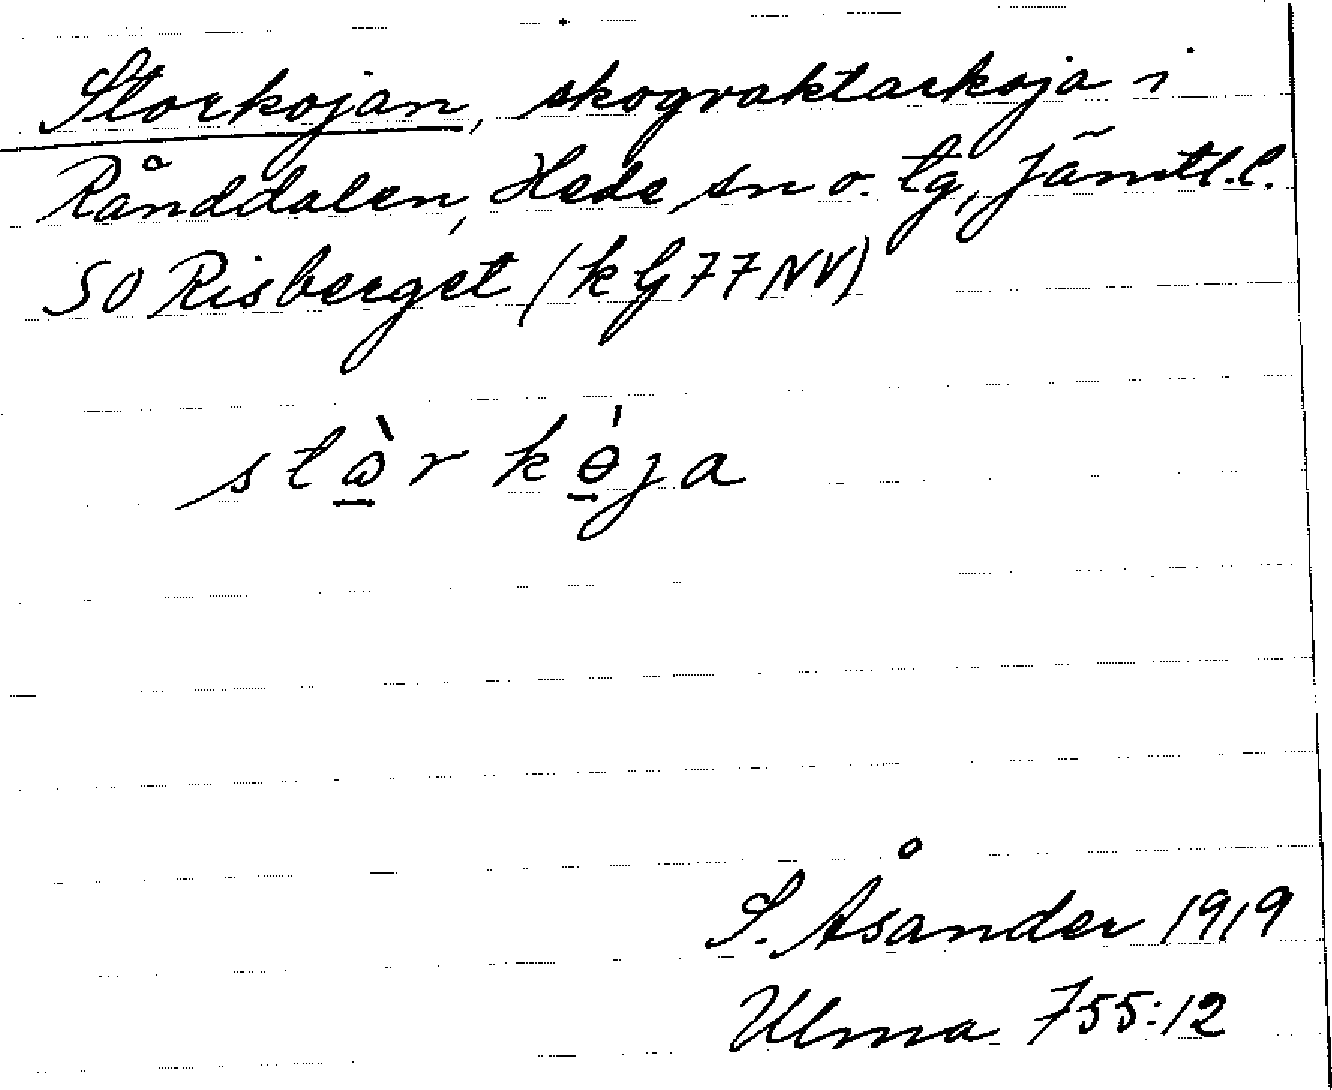 Storkojan, skogvaktarkoja i
Rånddalen, Hede sn o. tg, Jämtl.l.
SO Risberget (k G 77 NV)
stὼ̲r kɵ̲́ja
S. Åsander 1919
Ulma 755:12